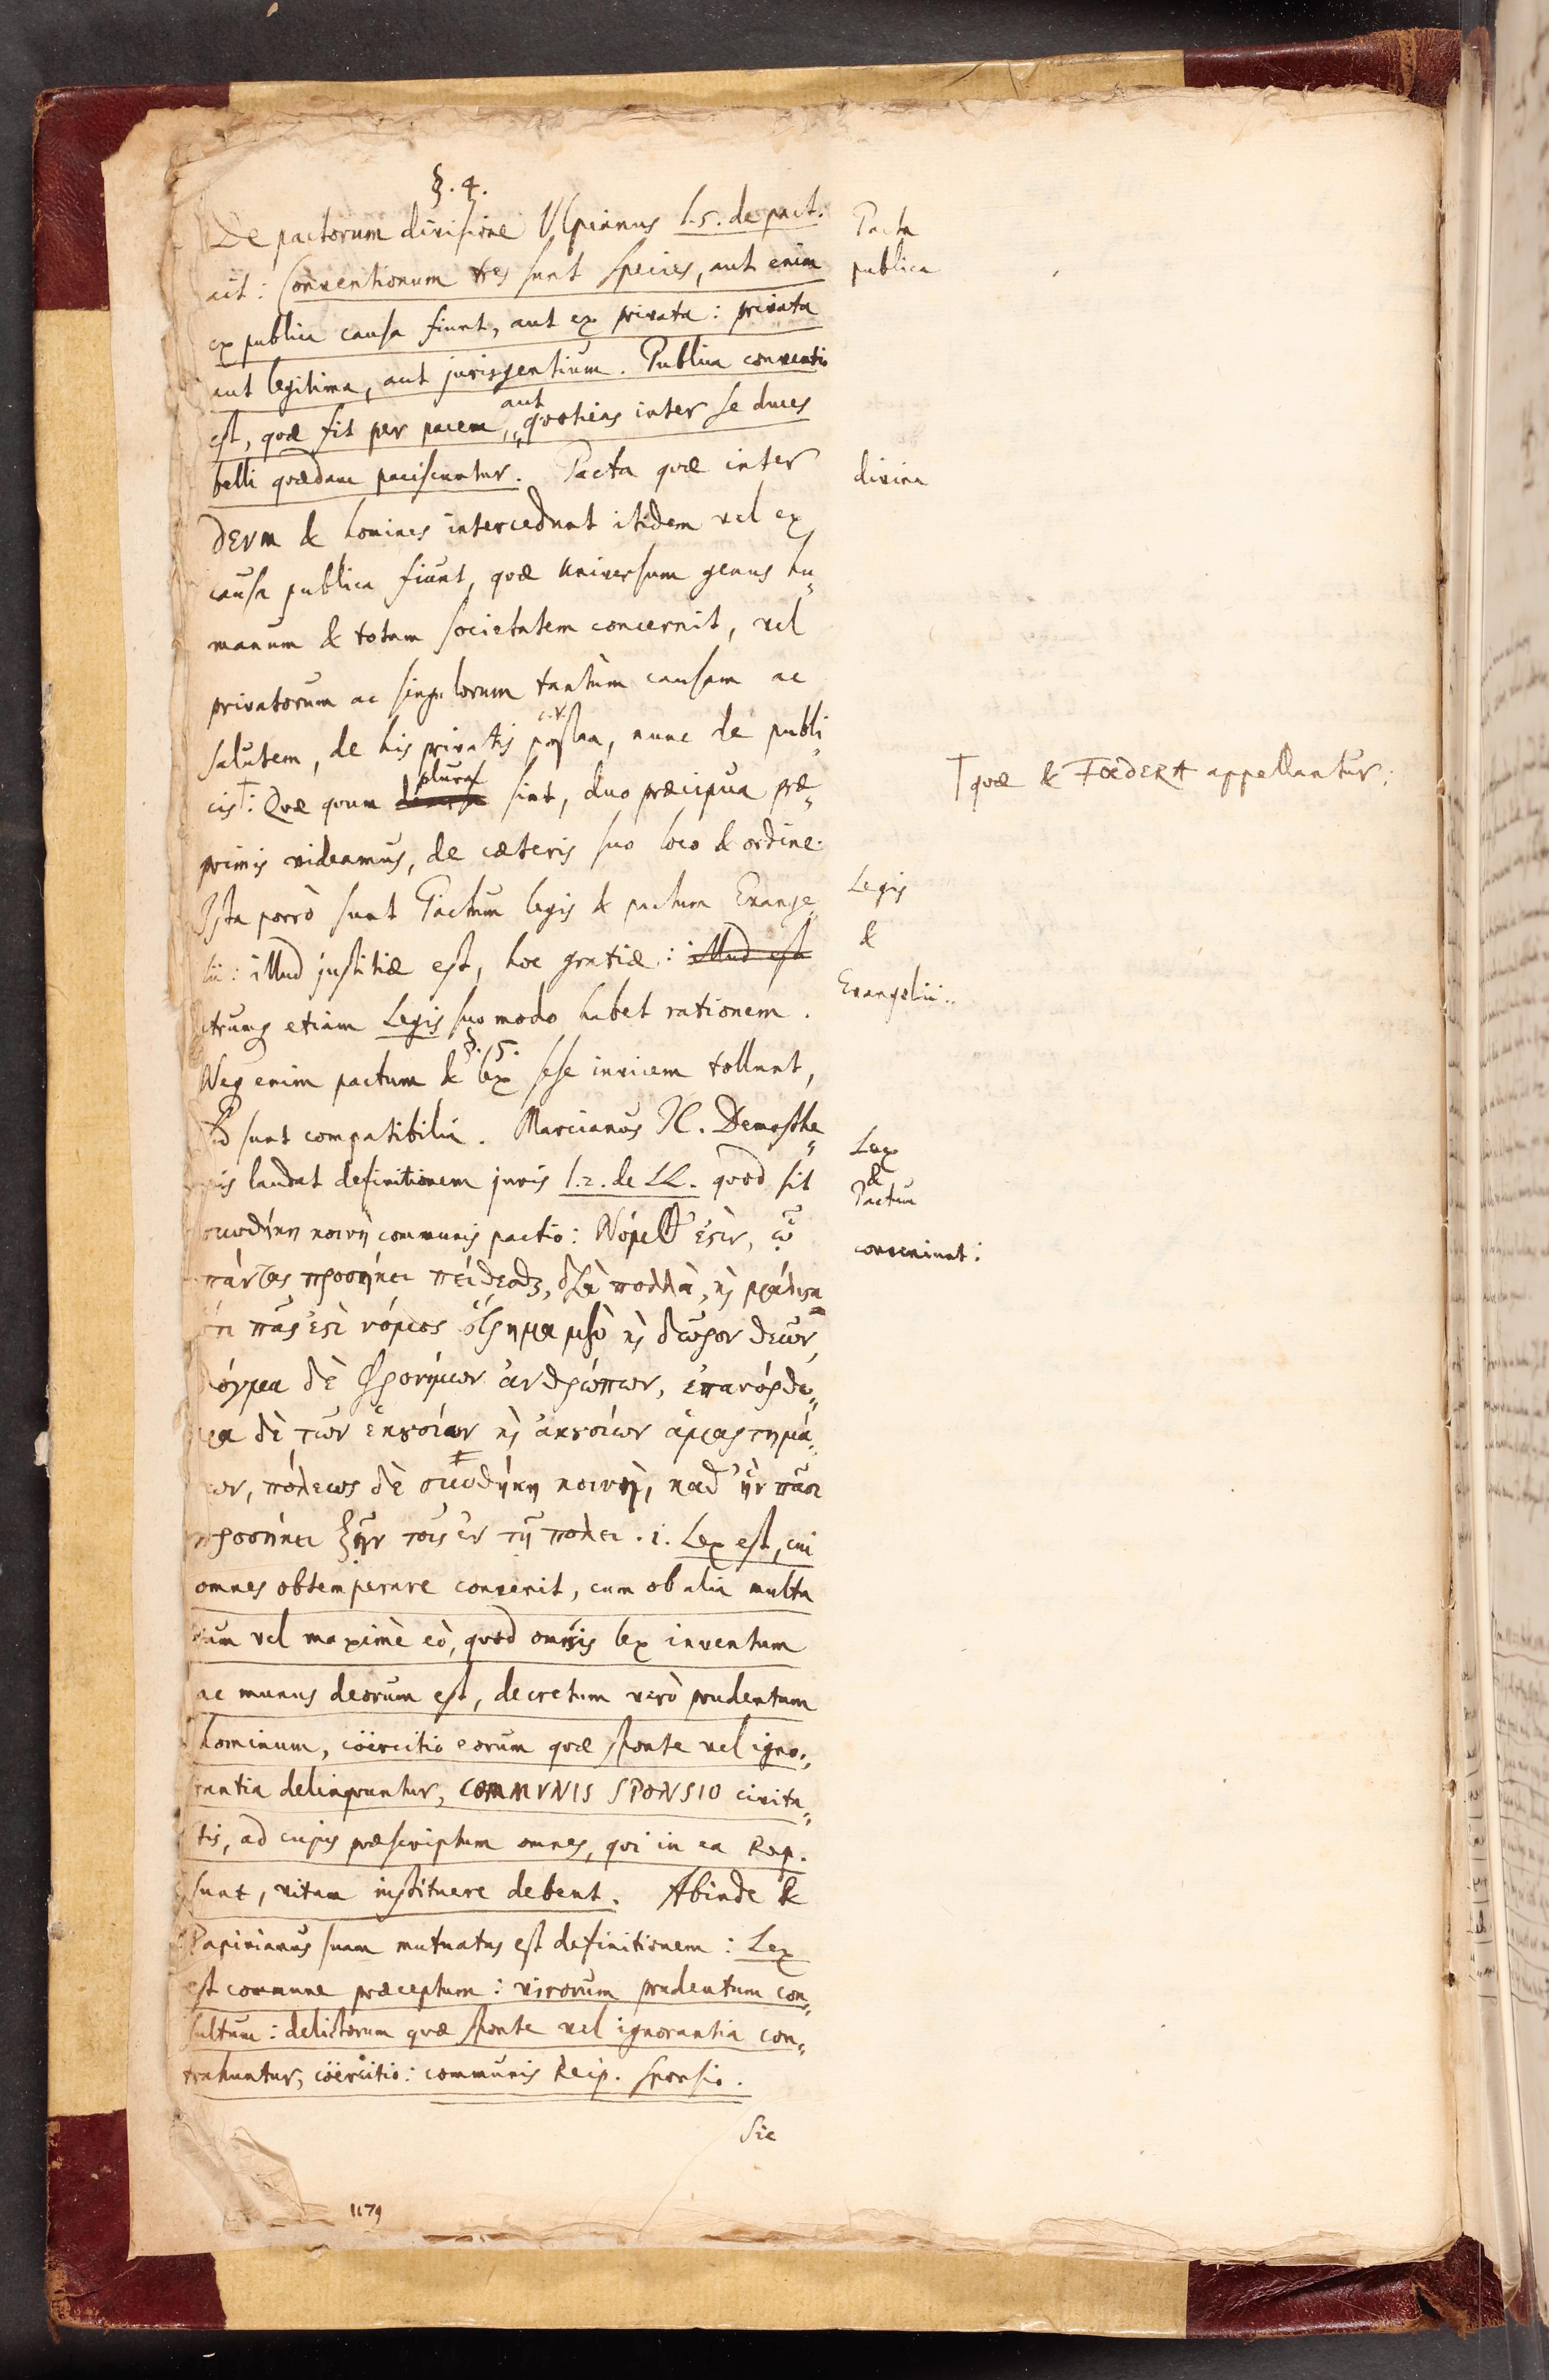 §. 4.
De pactorum divisione Ulpianus l. 5. de pact.
ait: Conventionum tres sunt species, aut enim
ex publica causa fiunt, aut ex privata: privata
aut legitima, aut juris gentium. Publica conventio
est, quæ fit per pacem, aut quotiens inter se duces
belli quædam paciscuntur. Pacta quæ inter
DEVM & homines intercedunt itidem vel ex
causa publica fiunt, quæ universum genus hu„
manum & totam societatem concernit, vel
privatorum ac singulorum tantùm causam ac
salutem, de his privatis c.V. postea, nunc de publi„
cis†: Quæ quum plura sint, duo præcipua præ„
primis videamus, de cæteris suo loco & ordine.
Ista porrò sunt Pactum legis & pactum Evange„
lii: illud justitiæ est, hoc gratiæ: illud est
utrumq etiam Legis suo modo habet rationem.
§. 5.
Neq enim pactum & lex sese invicem tollunt,
sed sunt compatibilia. Marcianus JC. Demosthe„
nis laudat definitionem juris l. 2. de LL. quod sit
συνθήκη κοινὴ communis pactio: Νόμος ἐςὶν, ᾧ
πάντας προσήκει πείθεσθαι, διὰ πολλὰ, κὶ μάλιςα
ὅτι πᾶς ἐςὶ νόμος εὕρημα μὲν κὶ δῶρον θεῶν,
δόγμα δὲ φρονήμων ἀνθρώπων, ἐπανόρθω„
μα δὲ τῶν ἑκȣσίων κὶ ἀκȣσίων ἁμαρτημά„
των, πόλεως δὲ συνθήκη κοινὴ, καθ' ἣν πᾶσι
προσήκει ζῆν τοῖς ἐν τῇ πολει. i. Lex est, cui
omnes obtemperare convenit, cum ob alia multa
tum vel maximè eò, quod omnis lex inventum
ac munus deorum est, decretum verò prudentum
hominum, coërcitio eorum quæ sponte vel igno„
rantia delinquuntur, COMMVNIS SPONSIO civita„
tis, ad cujus præscriptum omnes, qui in ea Rep.
sunt, vitam instituere debent. Abinde &
Papinianus suam mutuatus est definitionem: Lex
est commune præceptum: virorum prudentum con„
sultum: delictorum quæ sponte vel ignorantia con„
trahuntur, coërcitio: communis Reip. sponsio.
Sic
1179
Pacta
publica
divina
† quæ & FŒDERA appellantur:
Legis
&
Evangelii..
Lex
&
Pactum
conveniunt: